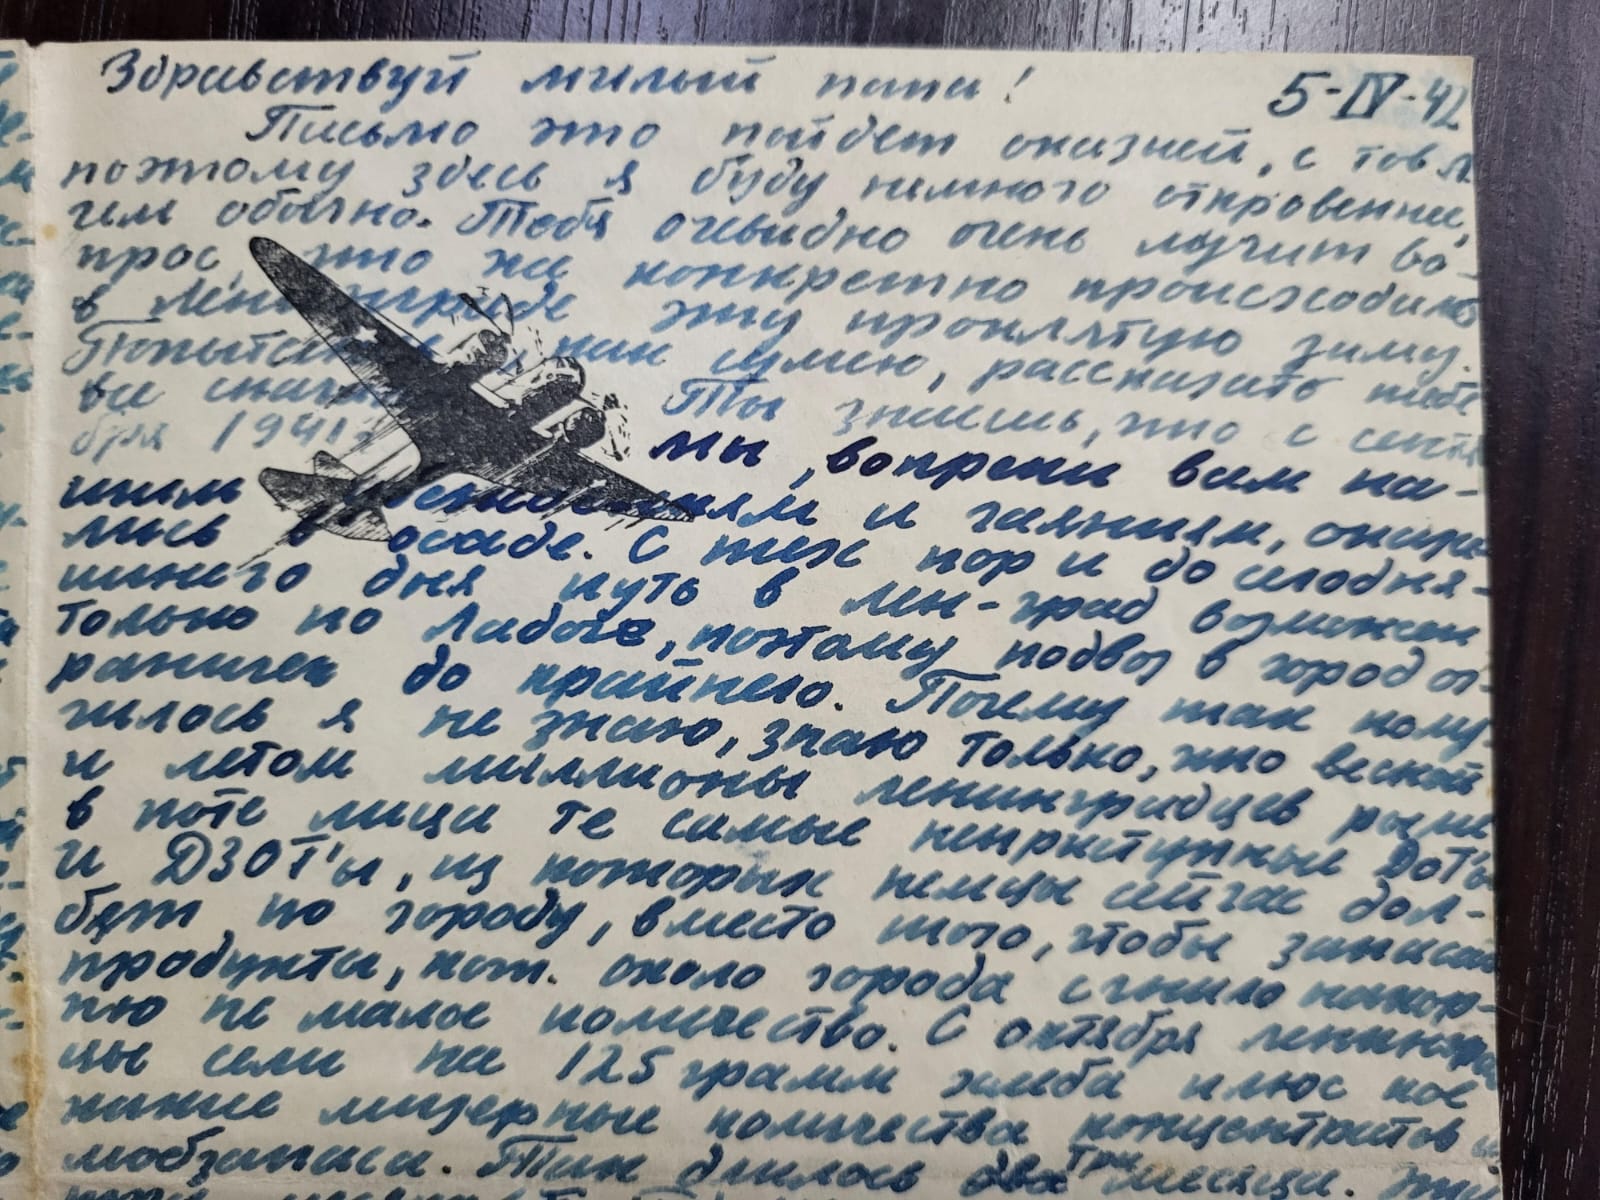 Здравствуй милый папа!
5-IV-42
Письмо это пойдет оказией, с тов
поэтому здесь я буду немного откровенне,
чем обычно. Тебя очевидно очень мучит во-
прос, что же конкретно происходило
в Ленинграде эту проклятую зиму.
Попытаюсь, как сумею, рассказать тебе
все сначала. Ты знаешь, что с сентя
бря 1941г. мы, вопреки всем на-
шим и чаяниям, оказа
лись в осаде. С тех пор и до сегодня-
шнего дня путь в лен-град возможен
только по Ладоге, поэтому подвоз в город ог-
раничен до крайнего. Почему так полу-
чилось я не знаю, знаю только, что весной
и летом миллионы ленинградцев рыли
в поте лица те самые неприступные ДОТ'ы
и ДЗОТ'ы, из которых немцы сейчас дол-
бят по городу, вместо того, чтобы запасать
продукты, кот. около города сгнило на кор-
ню не малое количество. С октября ленингра
цы сели на 125 грамм хлеба плюс кое
какие мизерные количества концентратов и
мобзапаса. Так длилось два три месяца.